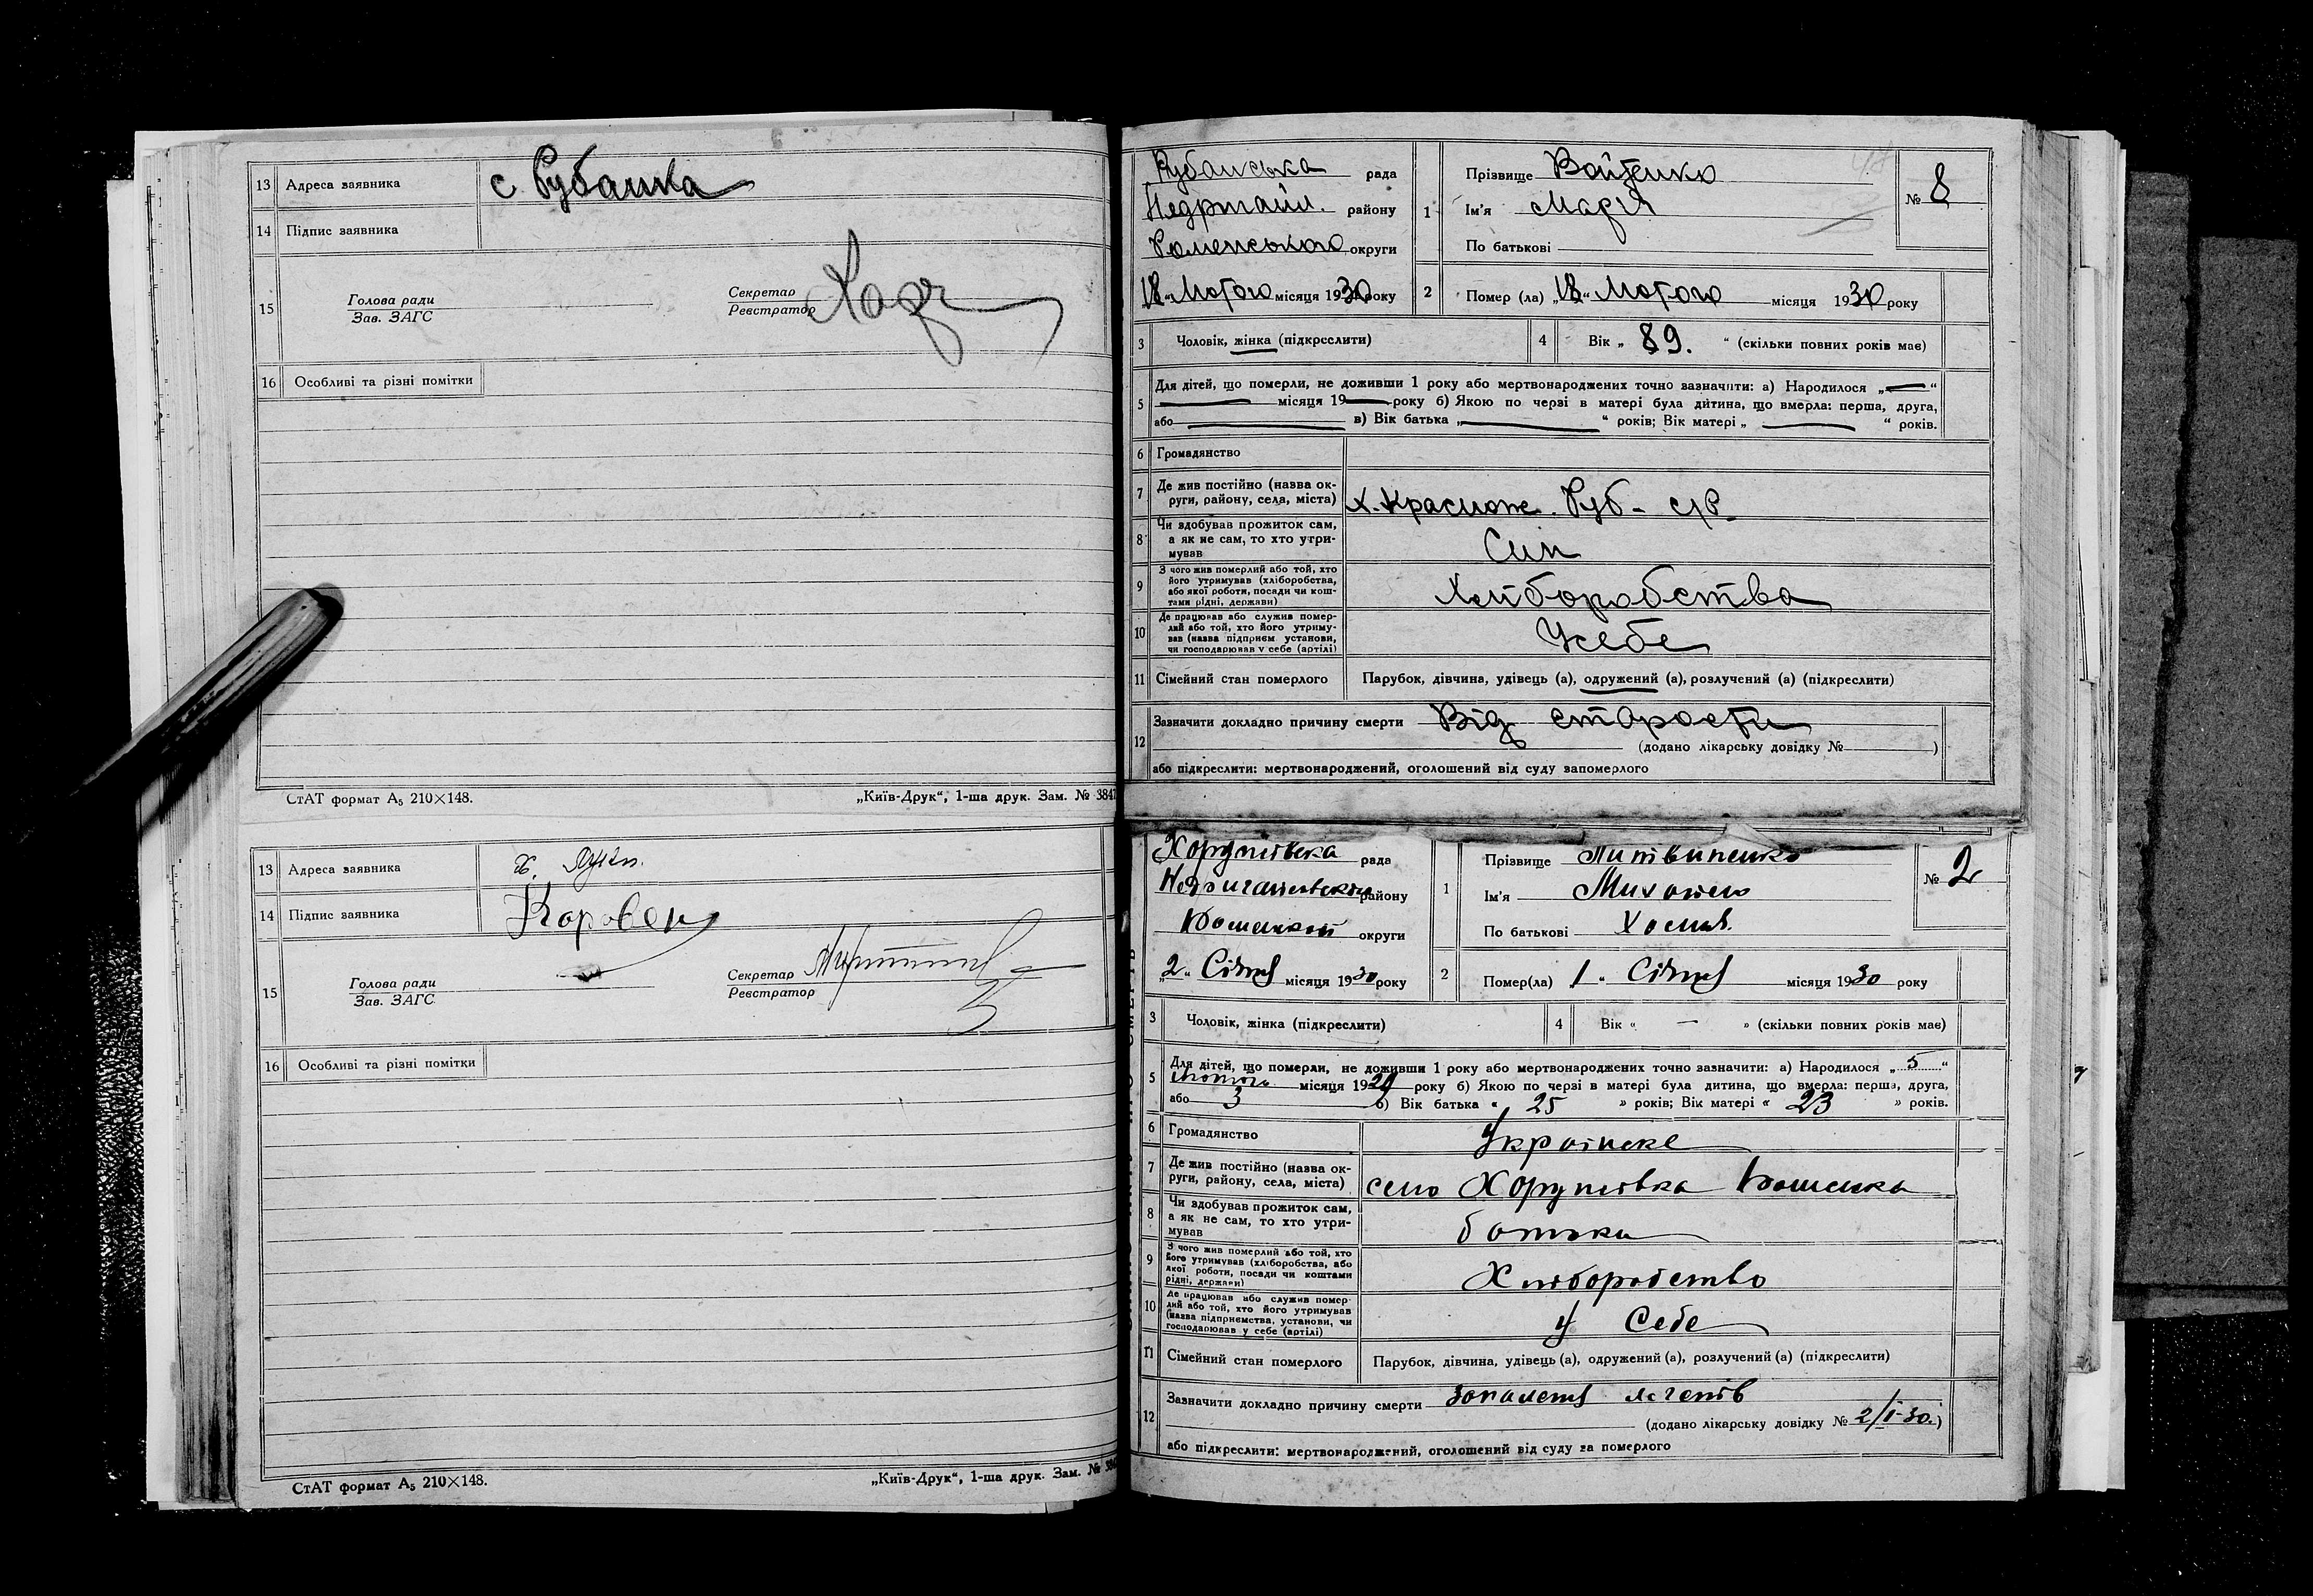 13 Адреса заявника с Рубанка
14 Підпис заявника
15 Голова ради
Зав. ЗАГС
Секретар
Реєстратор
16 Особливі та різні помітки
СтАТ формат А₅ 210×148. „Київ-Друк“, 1-ша друк. Зам. № 3847
13 Адреса заявника х.
14 Підпис заявника Коровен
15 Голова ради
Зав. ЗАГС
Секретар
Реєстратор
16 Особливі та різні помітки
СтАТ формат А₅ 210×148. „Київ-Друк“, 1-ша друк. Зам. №
Рубанська рада
району
Роменського округи
18 „ Лютого місяця 1930 року
1 Прізвище Войтенко
Ім'я Марія
По батькові
№ 8
2 Помер (ла) „18“ Лютого місяця 1930 року
3 Чоловік, жінка (підкреслити)
4 Вік „ 89. “ (скільки повних років має)
5 Для дітей, що померли, не доживши 1 року або мертвонароджених точно зазначити: а) Народилося „ — “
— місяця 19 — року б) Якою по черзі в матері була дитина, що вмерла: перша, друга,
або — в) Вік батька „ — “ років; Вік матері „ — “ років.
6 Громадянство
7 Де жив постійно (назва ок-
руги, району, села, міста) х. Краснояр. Руб - с/р
8 Чи здобував прожиток сам,
а як не сам, то хто утри-
мував Син
9 З чого жив померлий або той, хто
його утримував (хліборобства,
або якої роботи, посади чи кош-
тами рідні, держави) Хліборобства
10 Де працював або служив помер-
лий або той, хто його утриму-
вав (назва підприєм установи,
чи господарював у себе (артілі) Усебе
11 Сімейний стан померлого Парубок, дівчина, удівець (а), одружений (а), розлучений (а) (підкреслити)
12 Зазначити докладно причину смерти Від старости
(додано лікарську довідку № )
або підкреслити: мертвонароджений, оголошений від суду запомерлого
Хорунівска рада
району
округи
„2„ Січня місяця 1930 року
1 Прізвище Литвиненко
Ім'я Михайло
По батькові
№ 2
2 Помер(ла) „1„ Січня місяця 1930 року
3 Чоловік, жінка (підкреслити)
4 Вік « — » (скільки повних років має)
5 Для дітей, що померли, не доживши 1 року або мертвонароджених точно зазначити: а) Народилося „ 5 “
лютого місяця 1929 року б) Якою по черзі в матері була дитина, що вмерла: перша, друга,
або 3 в) Вік батька « 25 » років; Вік матері « 23 » років.
6 Громадянство Українске
7 Де жив постійно (назва ок-
руги, району, села, міста) село Хорунівка
8 Чи здобував прожиток сам,
а як не сам, то хто утри-
мував батько
9 З чого жив померлий або той, хто
його утримував (хліборобства, або
якої роботи, посади чи коштами
рідні, держави) Хліборобство
10 Де працював або служив помер-
лий або той, хто його утримував
(назва підприємства, установи, чи
господарював у себе (артілі) У Себе
11 Сімейний стан померлого Парубок, дівчина, удівець (а), одружений (а), розлучений (а) (підкреслити)
12 Зазначити докладно причину смерти Запаленя легенів
(додано лікарську довідку № 2/I-30.)
або підкреслити: мертвонароджений, оголошений від суду за померлого